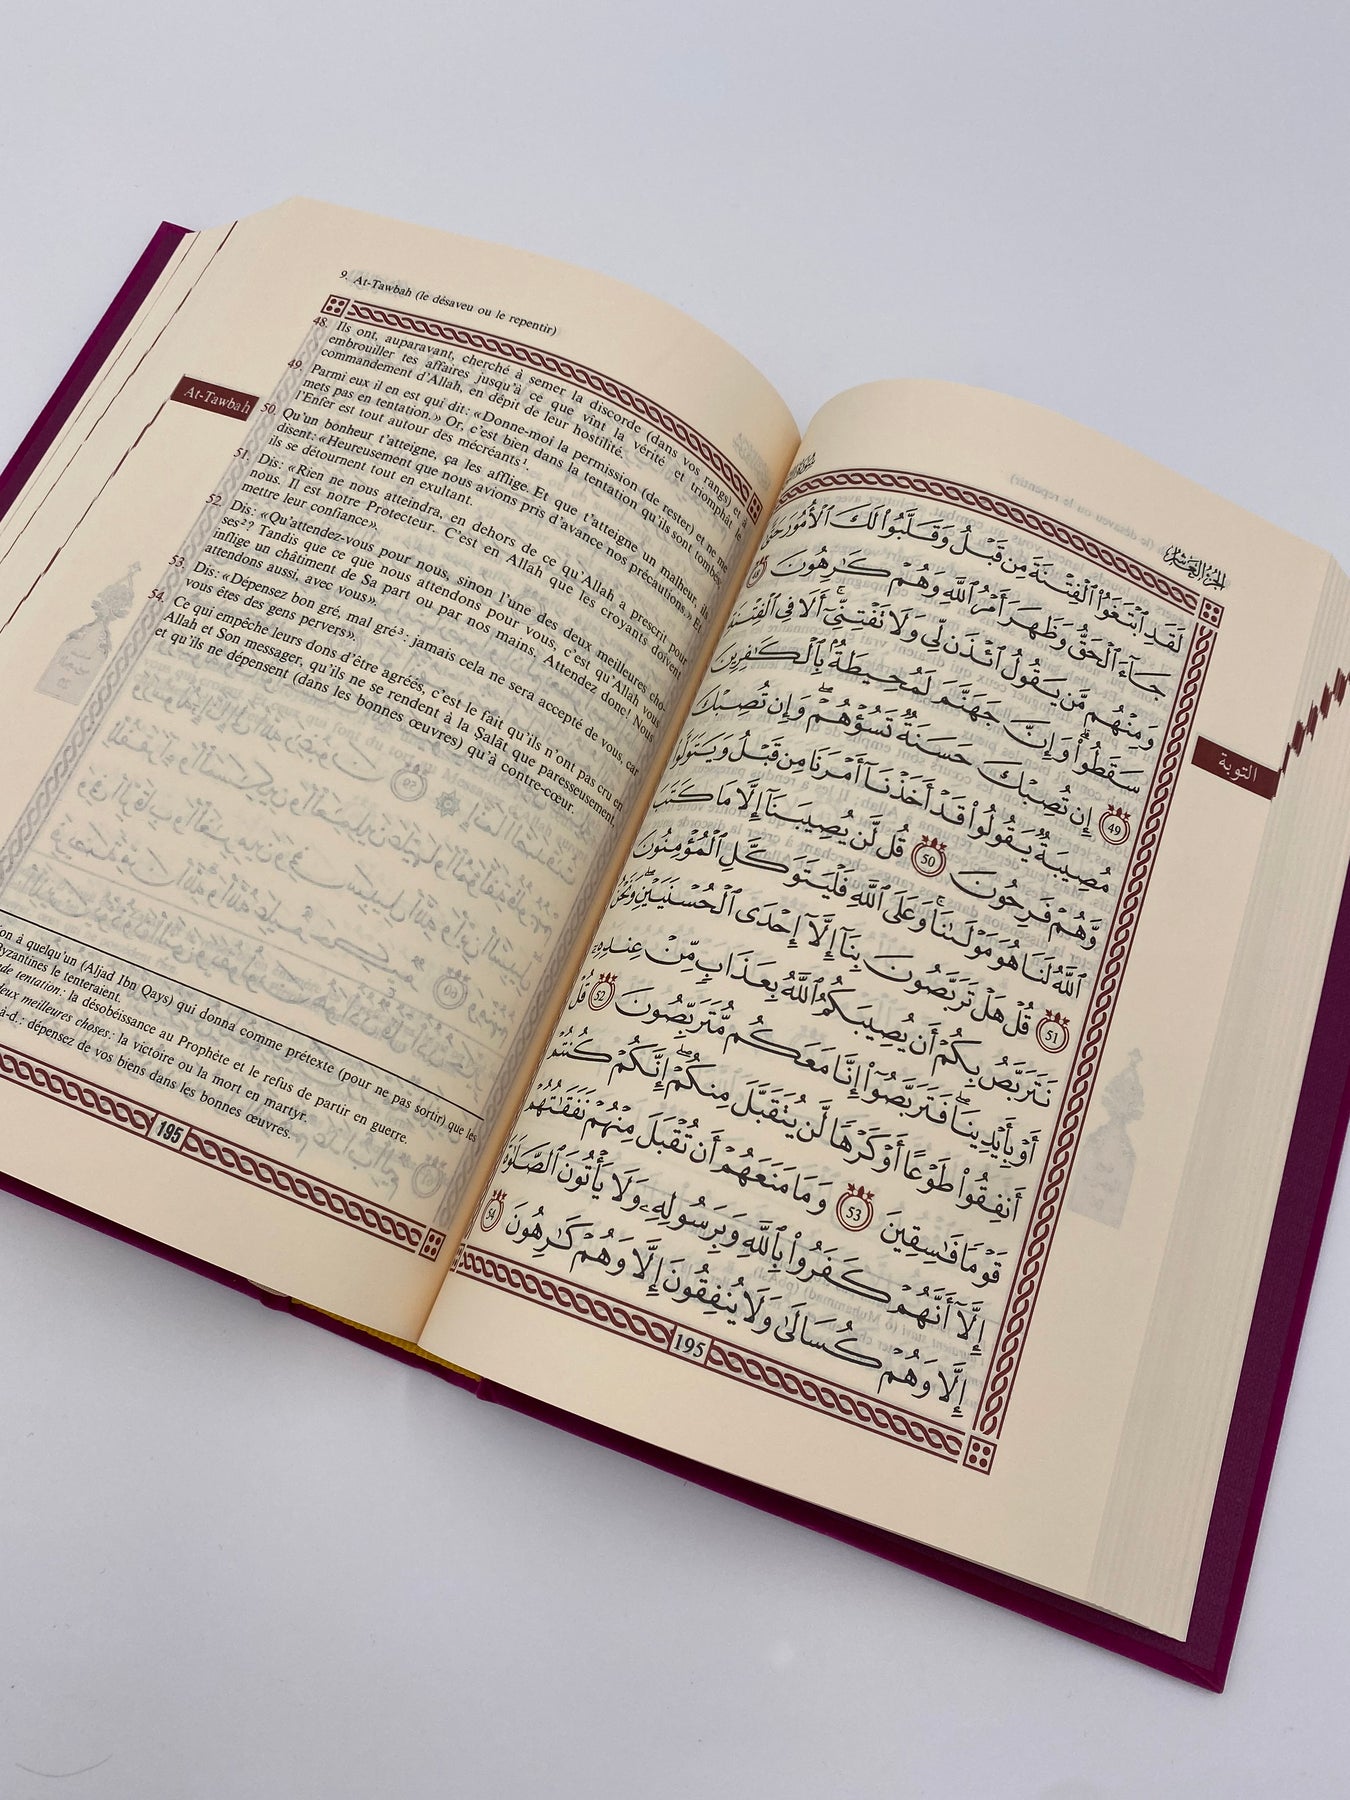 9. At-Tawbah (le désaveu ou le repentir)
At-Tawbah
48. Ils ont, auparavant, cherché à semer la discorde (dans vos rangs) et à
embrouiller tes affaires jusqu'à ce que vint la vérité et triomphât le
commandement d'Allah, en dépit de leur hostilité.
49. Parmi eux il en est qui dit: «Donne-moi la permission (de rester) et ne me
mets pas en tentation.» Or, c'est bien dans la tentation qu'ils sont tombés;
l'Enfer est tout autour des mécréants¹.
50. Qu'un bonheur t'atteigne, ça les afflige. Et que t'atteigne un malheur, ils
disent: «Heureusement que nous avions pris d'avance nos précautions.» Et
ils se détournent tout en exultant.
51. Dis: «Rien ne nous atteindra, en dehors de ce qu'Allah a prescrit pour
nous. Il est notre Protecteur. C'est en Allah que les croyants doivent
mettre leur confiance».
52. Dis: «Qu'attendez-vous pour nous, sinon l'une des deux meilleures cho-
ses²? Tandis que ce que nous attendons pour vous, c'est qu'Allah vous
inflige un châtiment de Sa part ou par nos mains. Attendez donc! Nous
attendons aussi, avec vous».
53. Dis: «Dépensez bon gré, mal gré³: jamais cela ne sera accepté de vous, car
vous êtes des gens pervers».
54. Ce qui empêche leurs dons d'être agréés, c'est le fait qu'ils n'ont pas cru en
Allah et Son messager, qu'ils ne se rendent à la Ṣalât que paresseusement,
et qu'ils ne dépensent (dans les bonnes œuvres) qu'à contre-cœur.
ion à quelqu'un (Aljad Ibn Qays) qui donna comme prétexte (pour ne pas sortir) que les
Byzantines le tenteraient.
nde tentation: la désobéissance au Prophète et le refus de partir en guerre.
deux meilleures choses: la victoire ou la mort en martyr.
à-d.: dépensez de vos biens dans les bonnes œuvres.
195
الجزء العاشر
التوبة
لَقَدِ ٱبْتَغَوُا۟ ٱلْفِتْنَةَ مِن قَبْلُ وَقَلَّبُوا۟ لَكَ ٱلْأُمُورَ حَتَّىٰ
جَآءَ ٱلْحَقُّ وَظَهَرَ أَمْرُ ٱللَّهِ وَهُمْ كَٰرِهُونَ 48
وَمِنْهُم مَّن يَقُولُ ٱئْذَن لِّى وَلَا تَفْتِنِّىٓ ۚ أَلَا فِى ٱلْفِتْنَةِ
سَقَطُوا۟ ۗ وَإِنَّ جَهَنَّمَ لَمُحِيطَةٌۢ بِٱلْكَٰفِرِينَ
49 إِن تُصِبْكَ حَسَنَةٌ تَسُؤْهُمْ ۖ وَإِن تُصِبْكَ
مُصِيبَةٌ يَقُولُوا۟ قَدْ أَخَذْنَآ أَمْرَنَا مِن قَبْلُ وَيَتَوَلَّوا۟
وَّهُمْ فَرِحُونَ 50 قُل لَّن يُصِيبَنَآ إِلَّا مَا كَتَبَ
ٱللَّهُ لَنَا هُوَ مَوْلَىٰنَا ۚ وَعَلَى ٱللَّهِ فَلْيَتَوَكَّلِ ٱلْمُؤْمِنُونَ
51 قُلْ هَلْ تَرَبَّصُونَ بِنَآ إِلَّآ إِحْدَى ٱلْحُسْنَيَيْنِ ۖ وَنَحْنُ
نَتَرَبَّصُ بِكُمْ أَن يُصِيبَكُمُ ٱللَّهُ بِعَذَابٍ مِّنْ عِندِهِۦٓ
أَوْ بِأَيْدِينَا ۖ فَتَرَبَّصُوٓا۟ إِنَّا مَعَكُم مُّتَرَبِّصُونَ 52 قُلْ
أَنفِقُوا۟ طَوْعًا أَوْ كَرْهًا لَّن يُتَقَبَّلَ مِنكُمْ ۖ إِنَّكُمْ كُنتُمْ
قَوْمًا فَٰسِقِينَ 53 وَمَا مَنَعَهُمْ أَن تُقْبَلَ مِنْهُمْ نَفَقَٰتُهُمْ
إِلَّآ أَنَّهُمْ كَفَرُوا۟ بِٱللَّهِ وَبِرَسُولِهِۦ وَلَا يَأْتُونَ ٱلصَّلَوٰةَ
إِلَّا وَهُمْ كُسَالَىٰ وَلَا يُنفِقُونَ إِلَّا وَهُمْ كَٰرِهُونَ 54
195